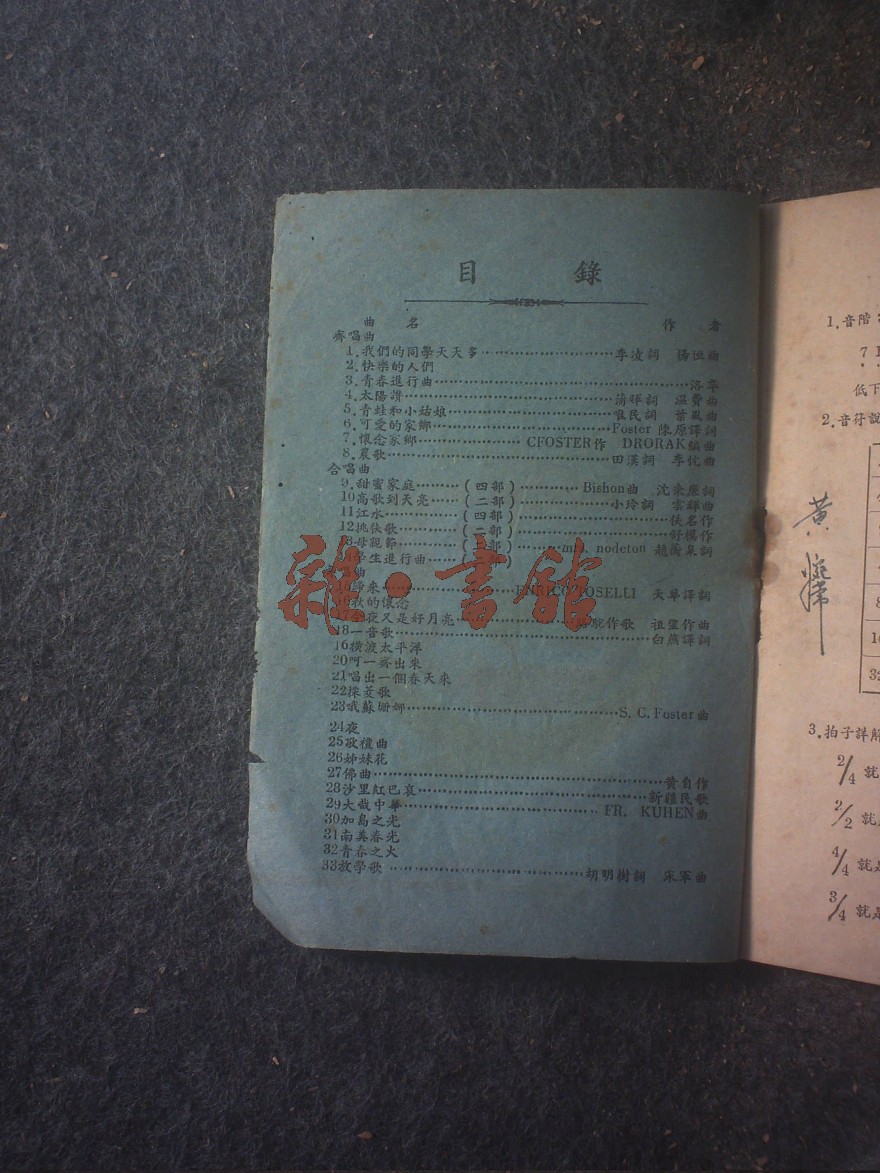 目錄
曲名 作者
齊唱曲
1.我們的同學天天多 李凌詞
2.快樂的人們
3.青春進行曲 洛辛
4.太陽讚
5.青蛙和小姑娘
6.可愛的家鄉 Foster 陳原譯詞
7.懷念家鄉 CFOSTER作 DRORAK編曲
8.晨歌 田漢詞
合唱曲
9.甜蜜家庭 (四部) Bishon曲
10高歌到天亮 (二部) 小玲詞
11江水 (四部) 佚名作
12挑伕歌 (二部) 舒模作
母親節 nodeton
學生進行曲
曲
歸來 ENRICO TOSELLI 天華譯詞
秋的懷念
今夜又是好月亮
18一音歌 白燕譯詞
16橫渡太平洋
20呵一齊出來
21唱出一個春天來
22採菱歌
23哦蘇姍娜 S. C. Foster曲
24夜
25敬禮曲
26姊妹花
27佛曲 黃自作
28沙里紅巴哀 新疆民歌
29大哉中華 FR. KUHEN曲
30加島之光
31南美春光
32青春之火
33放學歌 胡明樹詞 宋軍曲
雜·書館
1.音階
7
低下
2.音符說
黃
3.拍子詳解
2/4 就
2/2 就是
4/4 就是
3/4 就是